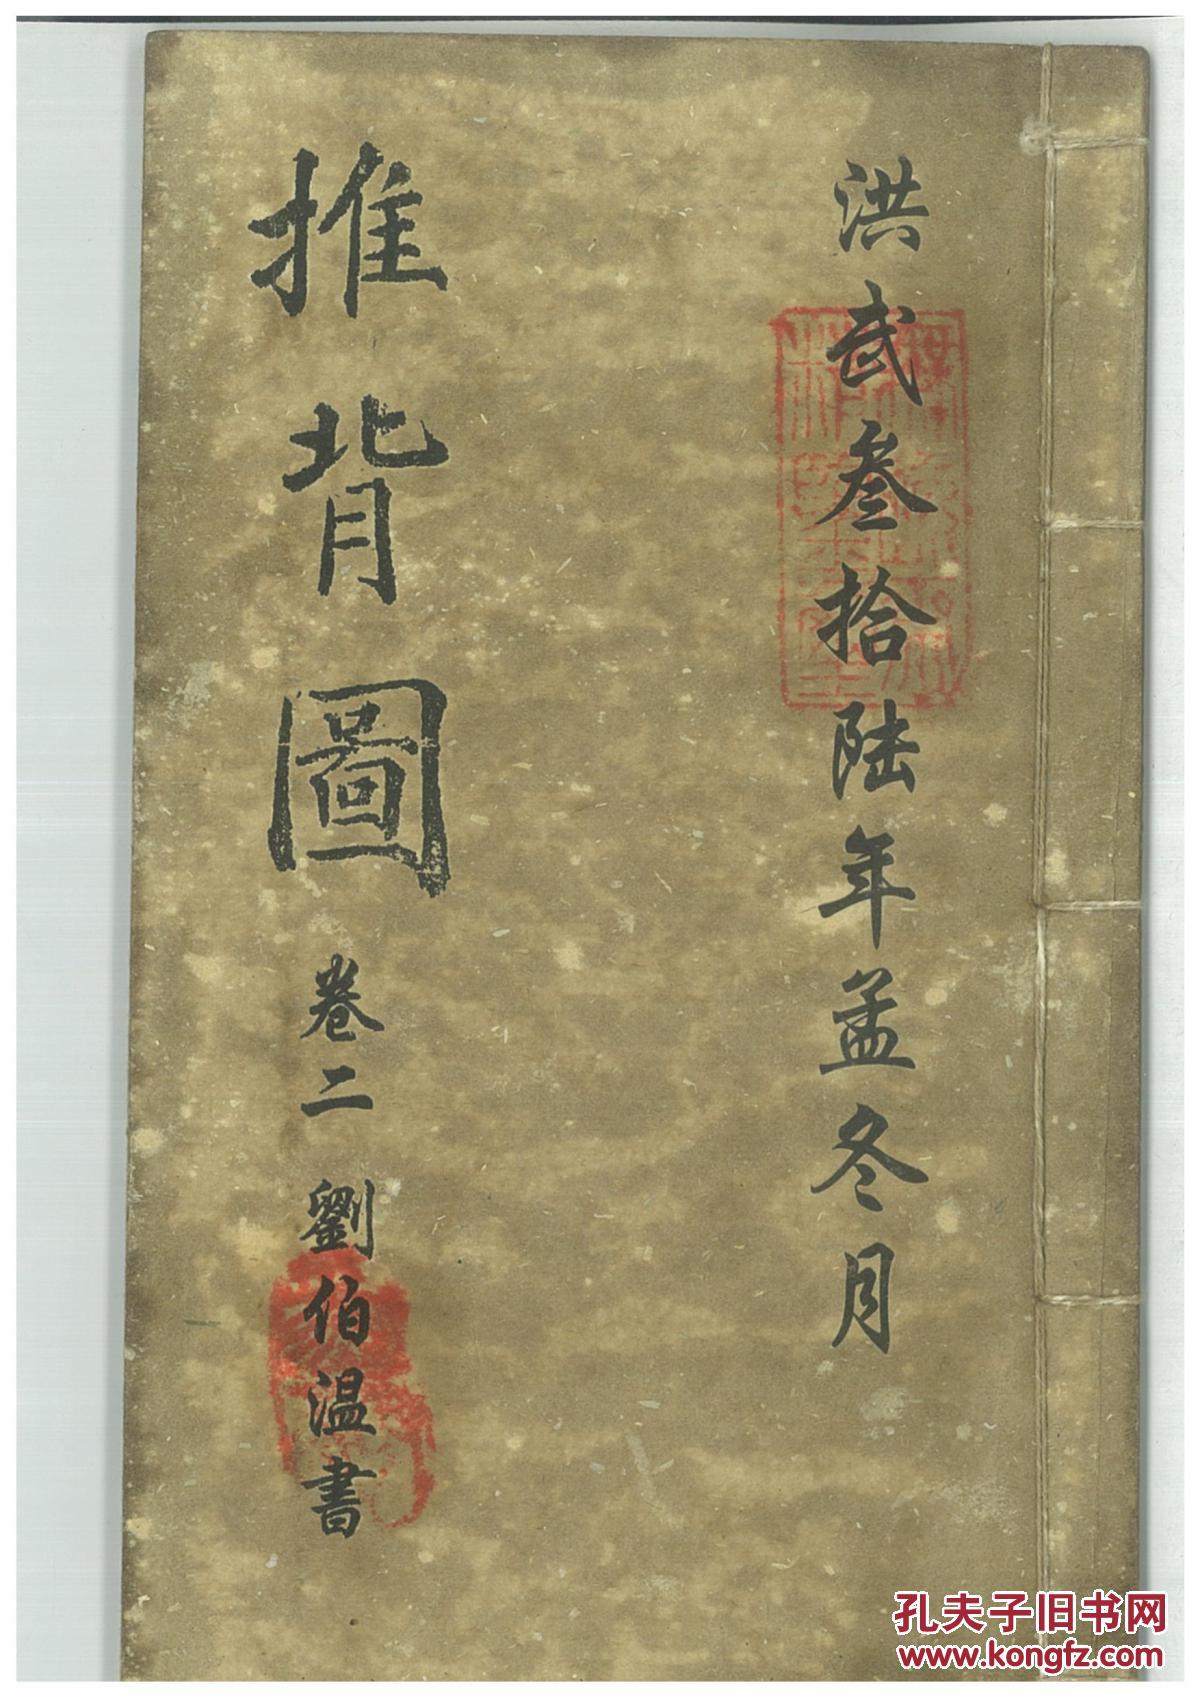 洪武叁拾陆年孟冬月
推背圖 卷二 劉伯温書
孔夫子旧书网
www.kongfz.com